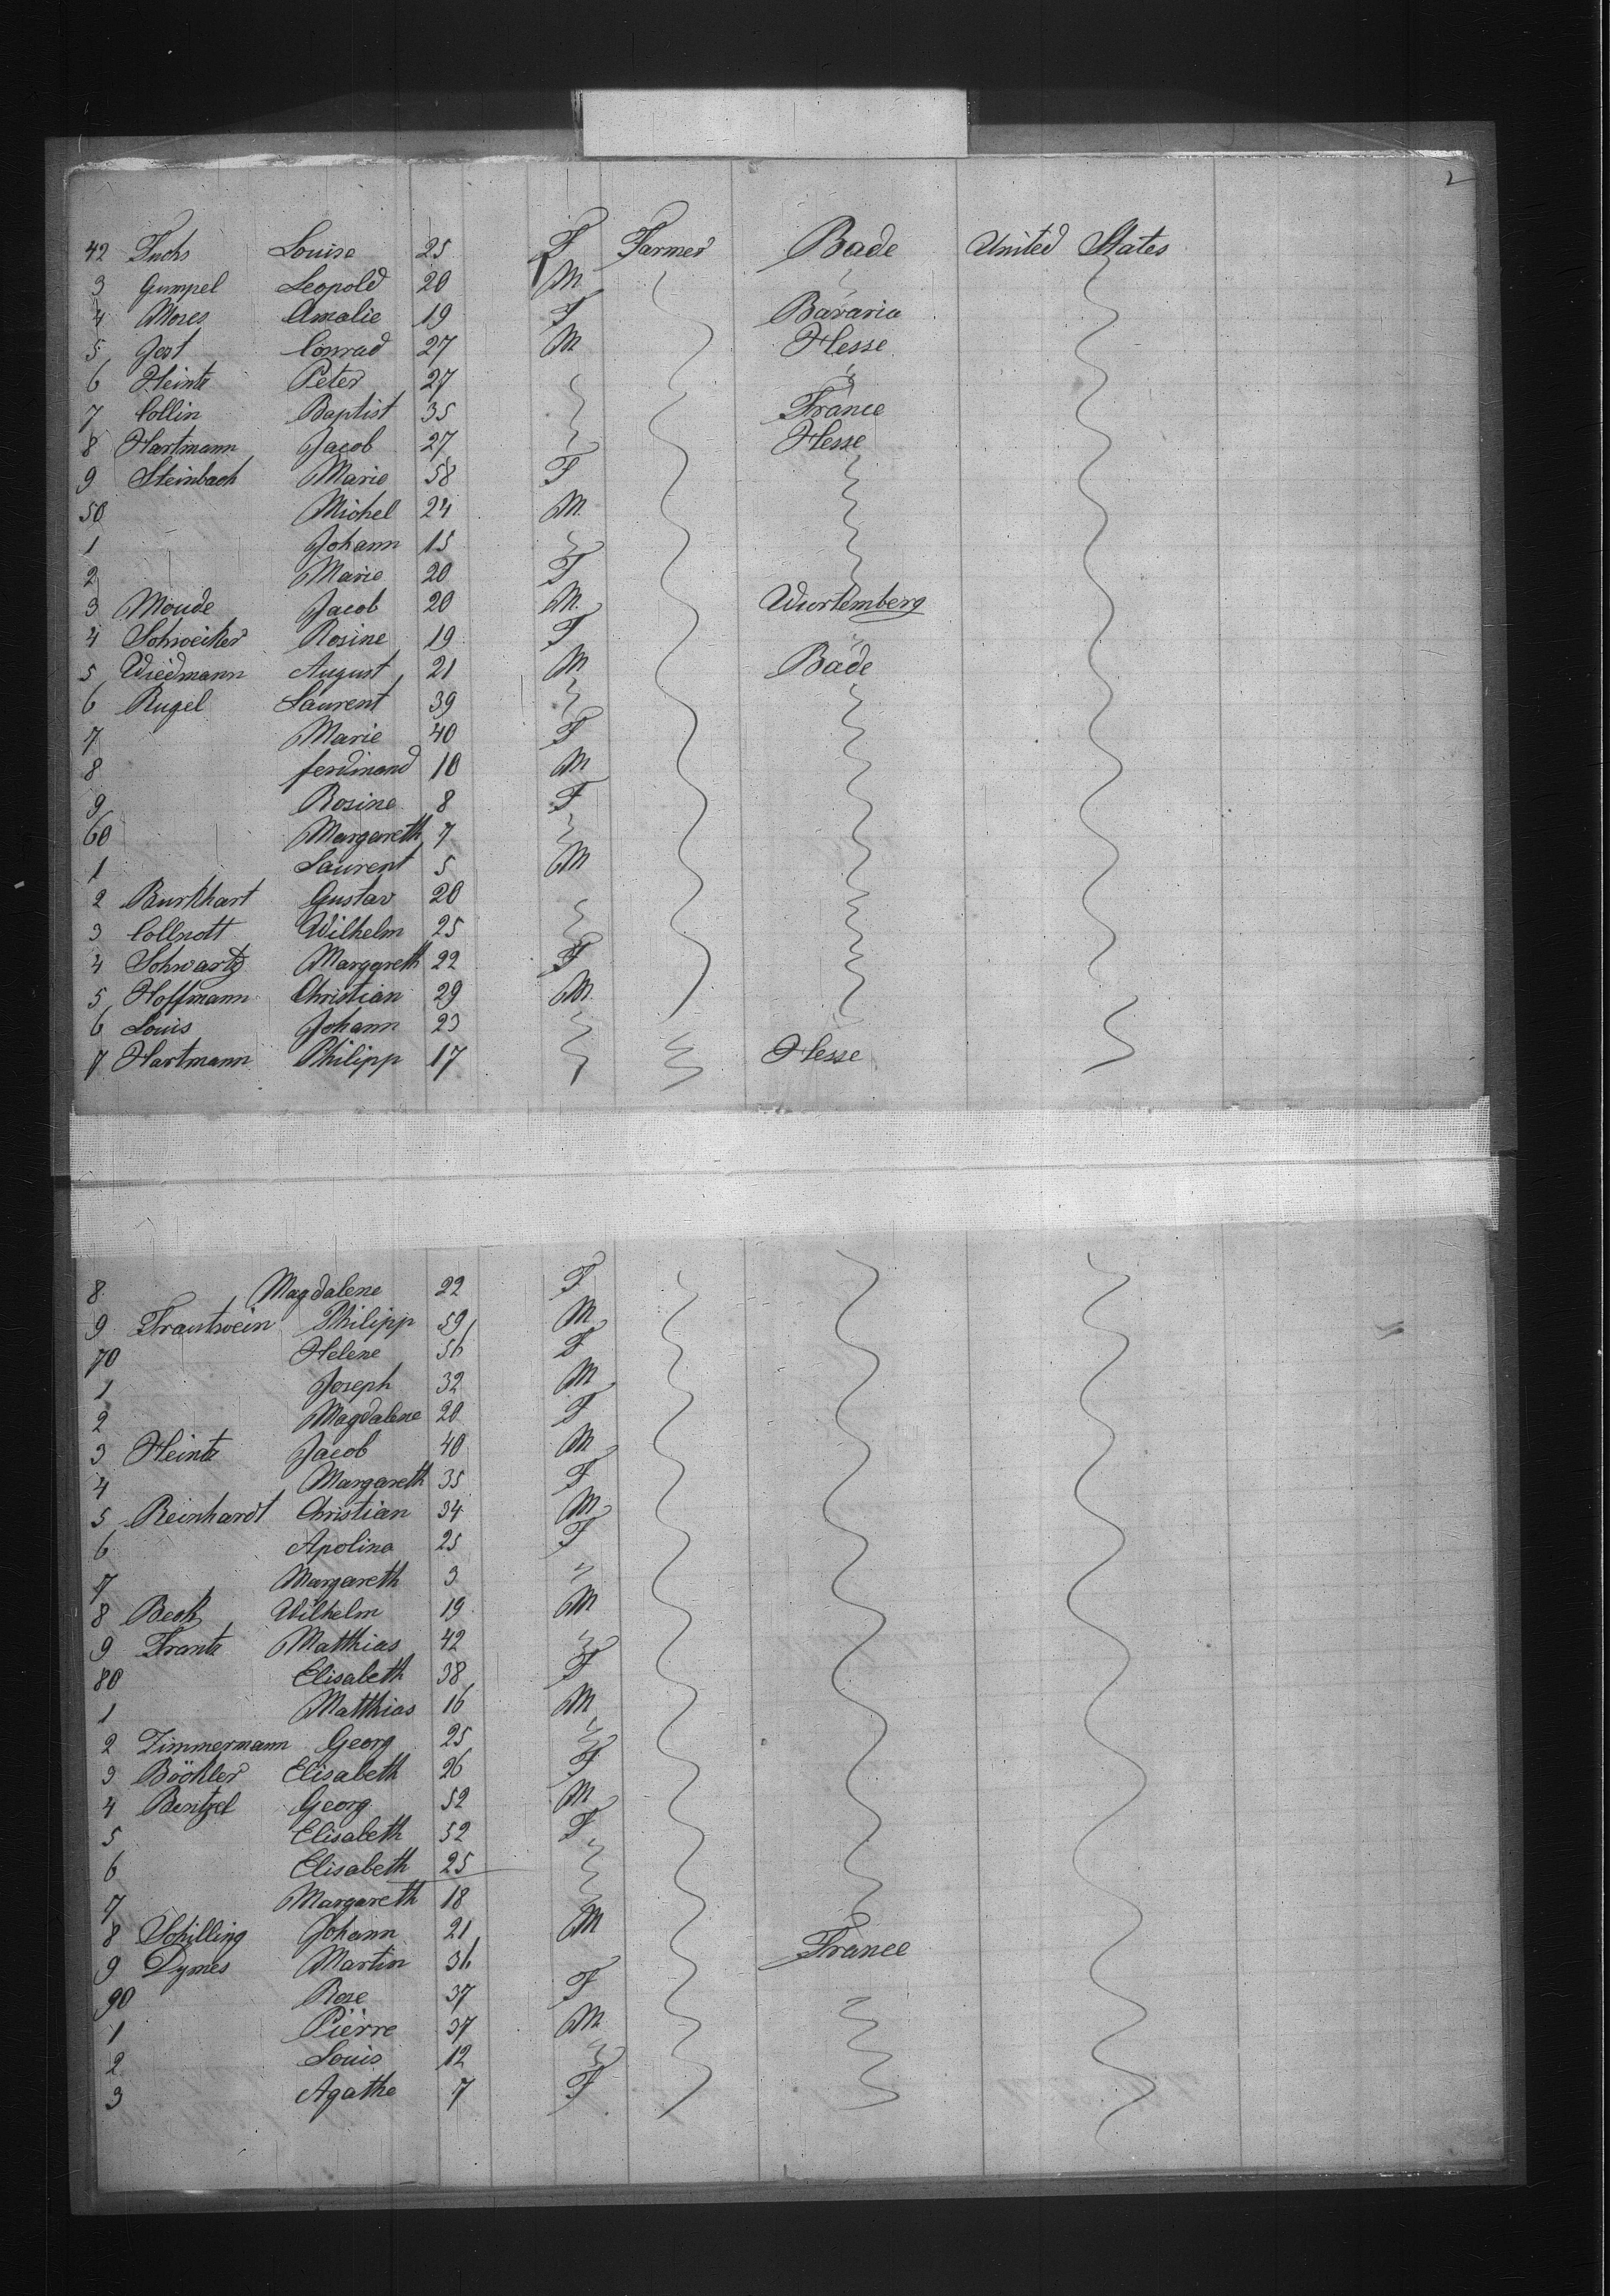 2
42 Fuchs Louise 25 F Farmer Bade United States
3 Gumpel Leopold 20 M
4 Moses Amalie 19 F Bavaria
5 Jost Conrad 27 M Hesse
6 Heintz Peter 27
7 Collin Baptist 35 France
8 Hartmann Jacob 27 Hesse
9 Steinbach Marie 58 F
50 Michel 24 M
1 Johann 15
2 Marie 20 F
3 Moude Jacob 20 M Wurtemberg
4 Schweiker Rosine 19 F
5 Wiedmann August 21 M Bade
6 Rugel Laurent 39
7 Marie 40 F
8 ferdinand 10 M
9 Rosine 8 F
60 Margareth 7
1 Laurent 5 M
2 Burkhart Gustav 20
3 Collnott Wilhelm 25
4 Schwartz Margareth 22 F
5 Hoffmann Christian 29 M
6 Louis Johann 23
7 Hartmann Philipp 17 Hesse
8 Magdalene 22 F
9 Trautwein Philipp 59 M
70 Helene 56 F
1 Joseph 32 M
2 Magdalene 20 F
3 Heintz Jacob 40 M
4 Margareth 35 F
5 Reinhardt Christian 34 M
6 Apolina 25 F
7 Margareth 3
8 Beck Wilhelm 19 M
9 Frantz Matthias 42
80 Elisabeth 38 F
1 Matthias 16 M
2 Zimmermann Georg 25
3 Böchler Elisabeth 26 F
4 Bentzel Georg 52 M
5 Elisabeth 52 F
6 Elisabeth 25
7 Margareth 18
8 Schilling Johann 21 M
9 Dymes Martin 36 France
90 Rose 37 F
1 Pierre 37 M
2 Louis 12
3 Agathe 7 F